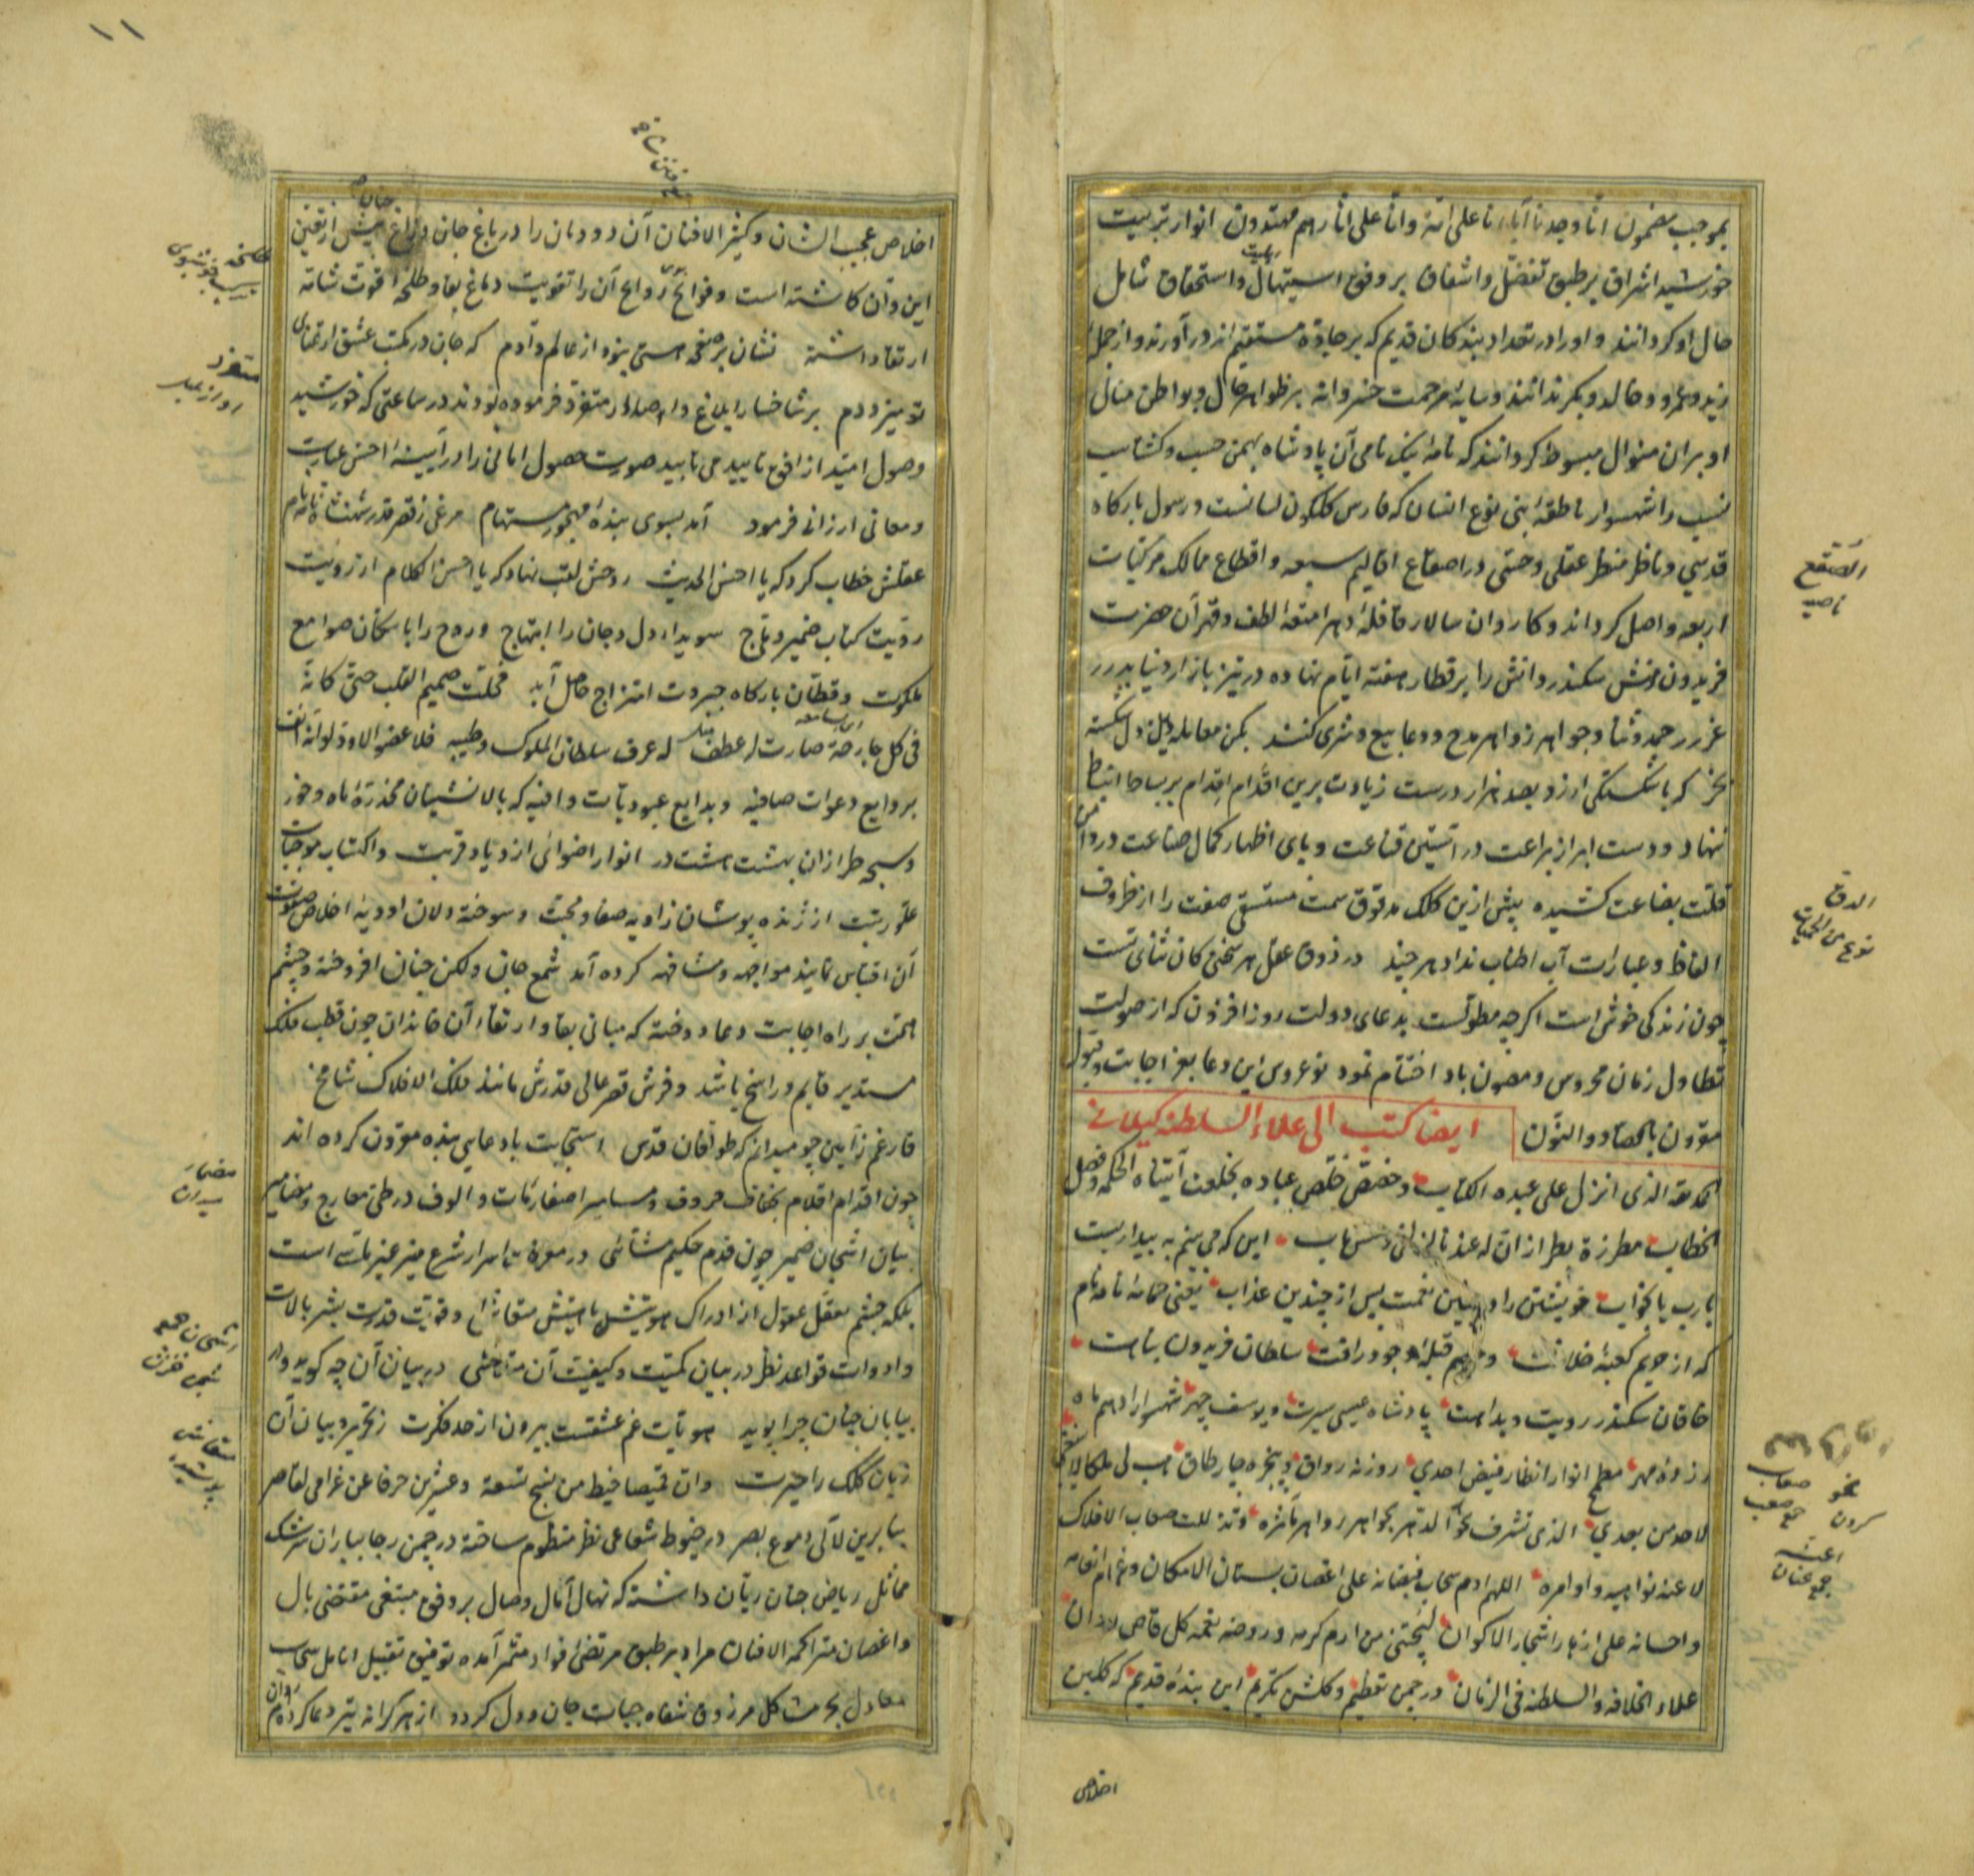 بموجب مضمون انا وجدنا آباءنا على امة وانا على آثارهم مهتدون انوار تربيت
خورشيد اشراق بر طبق تفضل واشفاق بر وفق استيهال واستحقاق شامل
حال او كردانند و او را در تعداد بندكان قديم كه بر جاده مستقيم اند در آورند و از جمله
زيد و عمرو و خالد و بكر ندانند و سايه مرحمت خسروانه بر ظواهر حال و بواطن
او بران منوال مبسوط كردانند كه نامه نيك نامى آن پادشاه بهمن حسب و كشتاسب
نسب را شهسوار ناطقه بنى نوع انسان كه فارس كلكون لسانست و رسول باركاه
قدسي و ناظر منظر عقلى و حسى در اصقاع اقاليم سبعه و اقطاع ممالك مركبات
اربعه واصل كرداند و كاروان سالار قافله دهر امتعه لطف و قهر آن حضرت
فريدون منش سكندر دانش را بر قطار هفته ايام نهاده در تيز بازار دنيا بدرر
غرر حمد و ثنا و جواهر زواهر مدح و دعا بيع و شرى كنند بكن معامله وين دل شكسته
بخر كه با شكستكى ارزد بصد هزار درست زيادت برين اقدام اقدام بر بساط انبساط
ننهاد و دست ابراز براعت در آستين قناعت و پاى اظهار كمال صناعت در دامن
قلت بضاعت كشيده پيش ازين كلك مدقوق سمت مستسقى صفت را از ظروف
الفاظ و عبارات آب اطناب نداد هر چند در ذوق عقل هر سخنى كان ثناى تست
چون زندكى خوش است اكرچه مطولست بدعاى دولت روز افزون كه از صولت
تطاول زمان محروس و مصون باد اختتام نمود نوعروس اين دعا بعز اجابت و قبول
مقرون بالصاد والنون ايضا كتب الى علاء السلطنه كيلانى
الحمد لله الذى انزل على عبده الكتاب و خصص خلص عباده بخلعت آتيناه الحكمة و فصل
الخطاب مطرزة بطراز ان له عندنا لزلفى و حسن مآب اين كه مى بينم به بيداريست
يارب يا بخواب خويشتن را در چنين نعمت پس از چندين عذاب يعنى حمامه نامه نام
كه از حريم كعبه خلافت و حريم قبله وجود رافت سلطان فريدون
خاقان سكندر رويت و بداهت پادشاه عيسى سيرت و يوسف چهر شهسوار ادهم ماه
مهر مطمح انوار انظار فيض احدي روزنه رواق و پنجره چار طاق هب لى ملكا لا ينبغى
لاحد من بعدي الذى تشرف نحو الدهر بجواهر زواهر مآثره و تذللت صعاب الافلاك
لاعنة نواهيه و اوامره اللهم ادم سحاب فيضانه على اغصان بستان الامكان و غمام انعامه
و احسانه على ازهار اشجار الاكوان ليجتنى من ارم كرمه و روضه نعمه كل قاص و دان
علاء الخلافه والسلطنه فى الزمان در چمن تعظيم و كلشن تكريم اين بنده قديم كه كلبن
اخلاص
الصقع
ناحيه
الدق
نوع من الحميات
صعاب
جمع صعب
اعنه
جمع عنان
١١
اخلاص عجيب الشان و كثير الافنان آن دودمان را در باغ جان پيش از تعين
اين و آن كاشته است و فوائح روايح آن را تقويت دماغ بقا و طلحه قوت شامه
ارتقا داشته نشان بر صفحه هستى نبود از عالم و آدم كه جان در مكتب عشق از تمناى
تو ميزد دم بر شاخسار ابلاغ و اصدار متغرد فرموده بودند در ساعتى كه خورشيد
وصول اميد از افق تاييد مى تابيد صورت حصول امانى را در آينه احسن عبارت
و معانى ارزانى فرمود آمد بسوى بنده مهجور مستهام مرغى ز قصر قدر شهنشاه نامه نام
عقلش خطاب كرد كه يا احسن الحديث روحش لقب نهاد كه يا احسن الكلام از رويت
رؤيت كتاب ضمير و تلج سويداء دل و جان را ابتهاج و روح را با سكان صوامع
ملكوت و قطان باركاه جبروت امتزاج حاصل آمد فحلت صميم القلب حتى كانه
فى كل جارحة صارت له عرف سلطان الملوك وطيبه فلا عضو الا و
بروايع دعوات صافيه و بدايع عبوديات وافيه كه بالانشينان مخدره ماه و خور
و سبحه طرازان بهشت هشت در انوار اضواى ازدياد قربت و اكتساب موجبات
علو رتبت از ژنده پوشان زاويه صفا و محبت و سوخته دلان اوديه اخلاص
آن اقتباس نمايند مواجهه و مشافهه كرده آمد شمع جان و لكن جنان افروخته و چشم
همت بر راه اجابت دعا دوخته كه مبانى بقا و ارتقاء آن خاندان چون قطب فلك
مستدير قايم و راسخ باشد و فرش قصر عالى قدرش مانند فلك الافلاك شامخ
فارغم ز آمين چو ميدانم كه طوافان قدس استجابت با دعاى بنده مقرون كرده اند
چون اقدام اقلام بخفاف حروف و مسامير اصفار مات و الوف در طى معارج و مضامير
بيان اشجان ضمير چون قدم حكيم مشائى در معرفت اسرار شرع منير غير ثابت است
بلكه چشم معقل عقول از ادراك هويتش با و قوت قدرت بشر بالات
و ادوات قواعد نظر در بيان كميت و كيفيت آن متحاشى در بيان آن چه كويد و در
بيابان چنان چرا پويد هويات غم عشقت بيرون از حد فكرت ز تحرير و بيان آن
زبان كلك را حيرت و ان قميصا خيط من نسج تسعة و عشرين حرفا عن غرامى لقاصر
بنابرين لآلى دموع بصر در خيوط شعاعى نظر منظوم ساخته در چمن رجا بباران سرشك
مماثل رياض جنان ريان داشته كه نهال آمال وصال بر وفق مبتغى مقتضى بال
و اغصان متراكمه الافنان مراد بر طبق مرتضى فواد مثمر آمده توفيق تقبيل انامل سحاب
معادل بحر مشاكل مرزوق شفاه حيات جان و دل كردد از هر كرانه تير دعا كرده ام روان
متغرد
مضمار
ميدان
اشجان